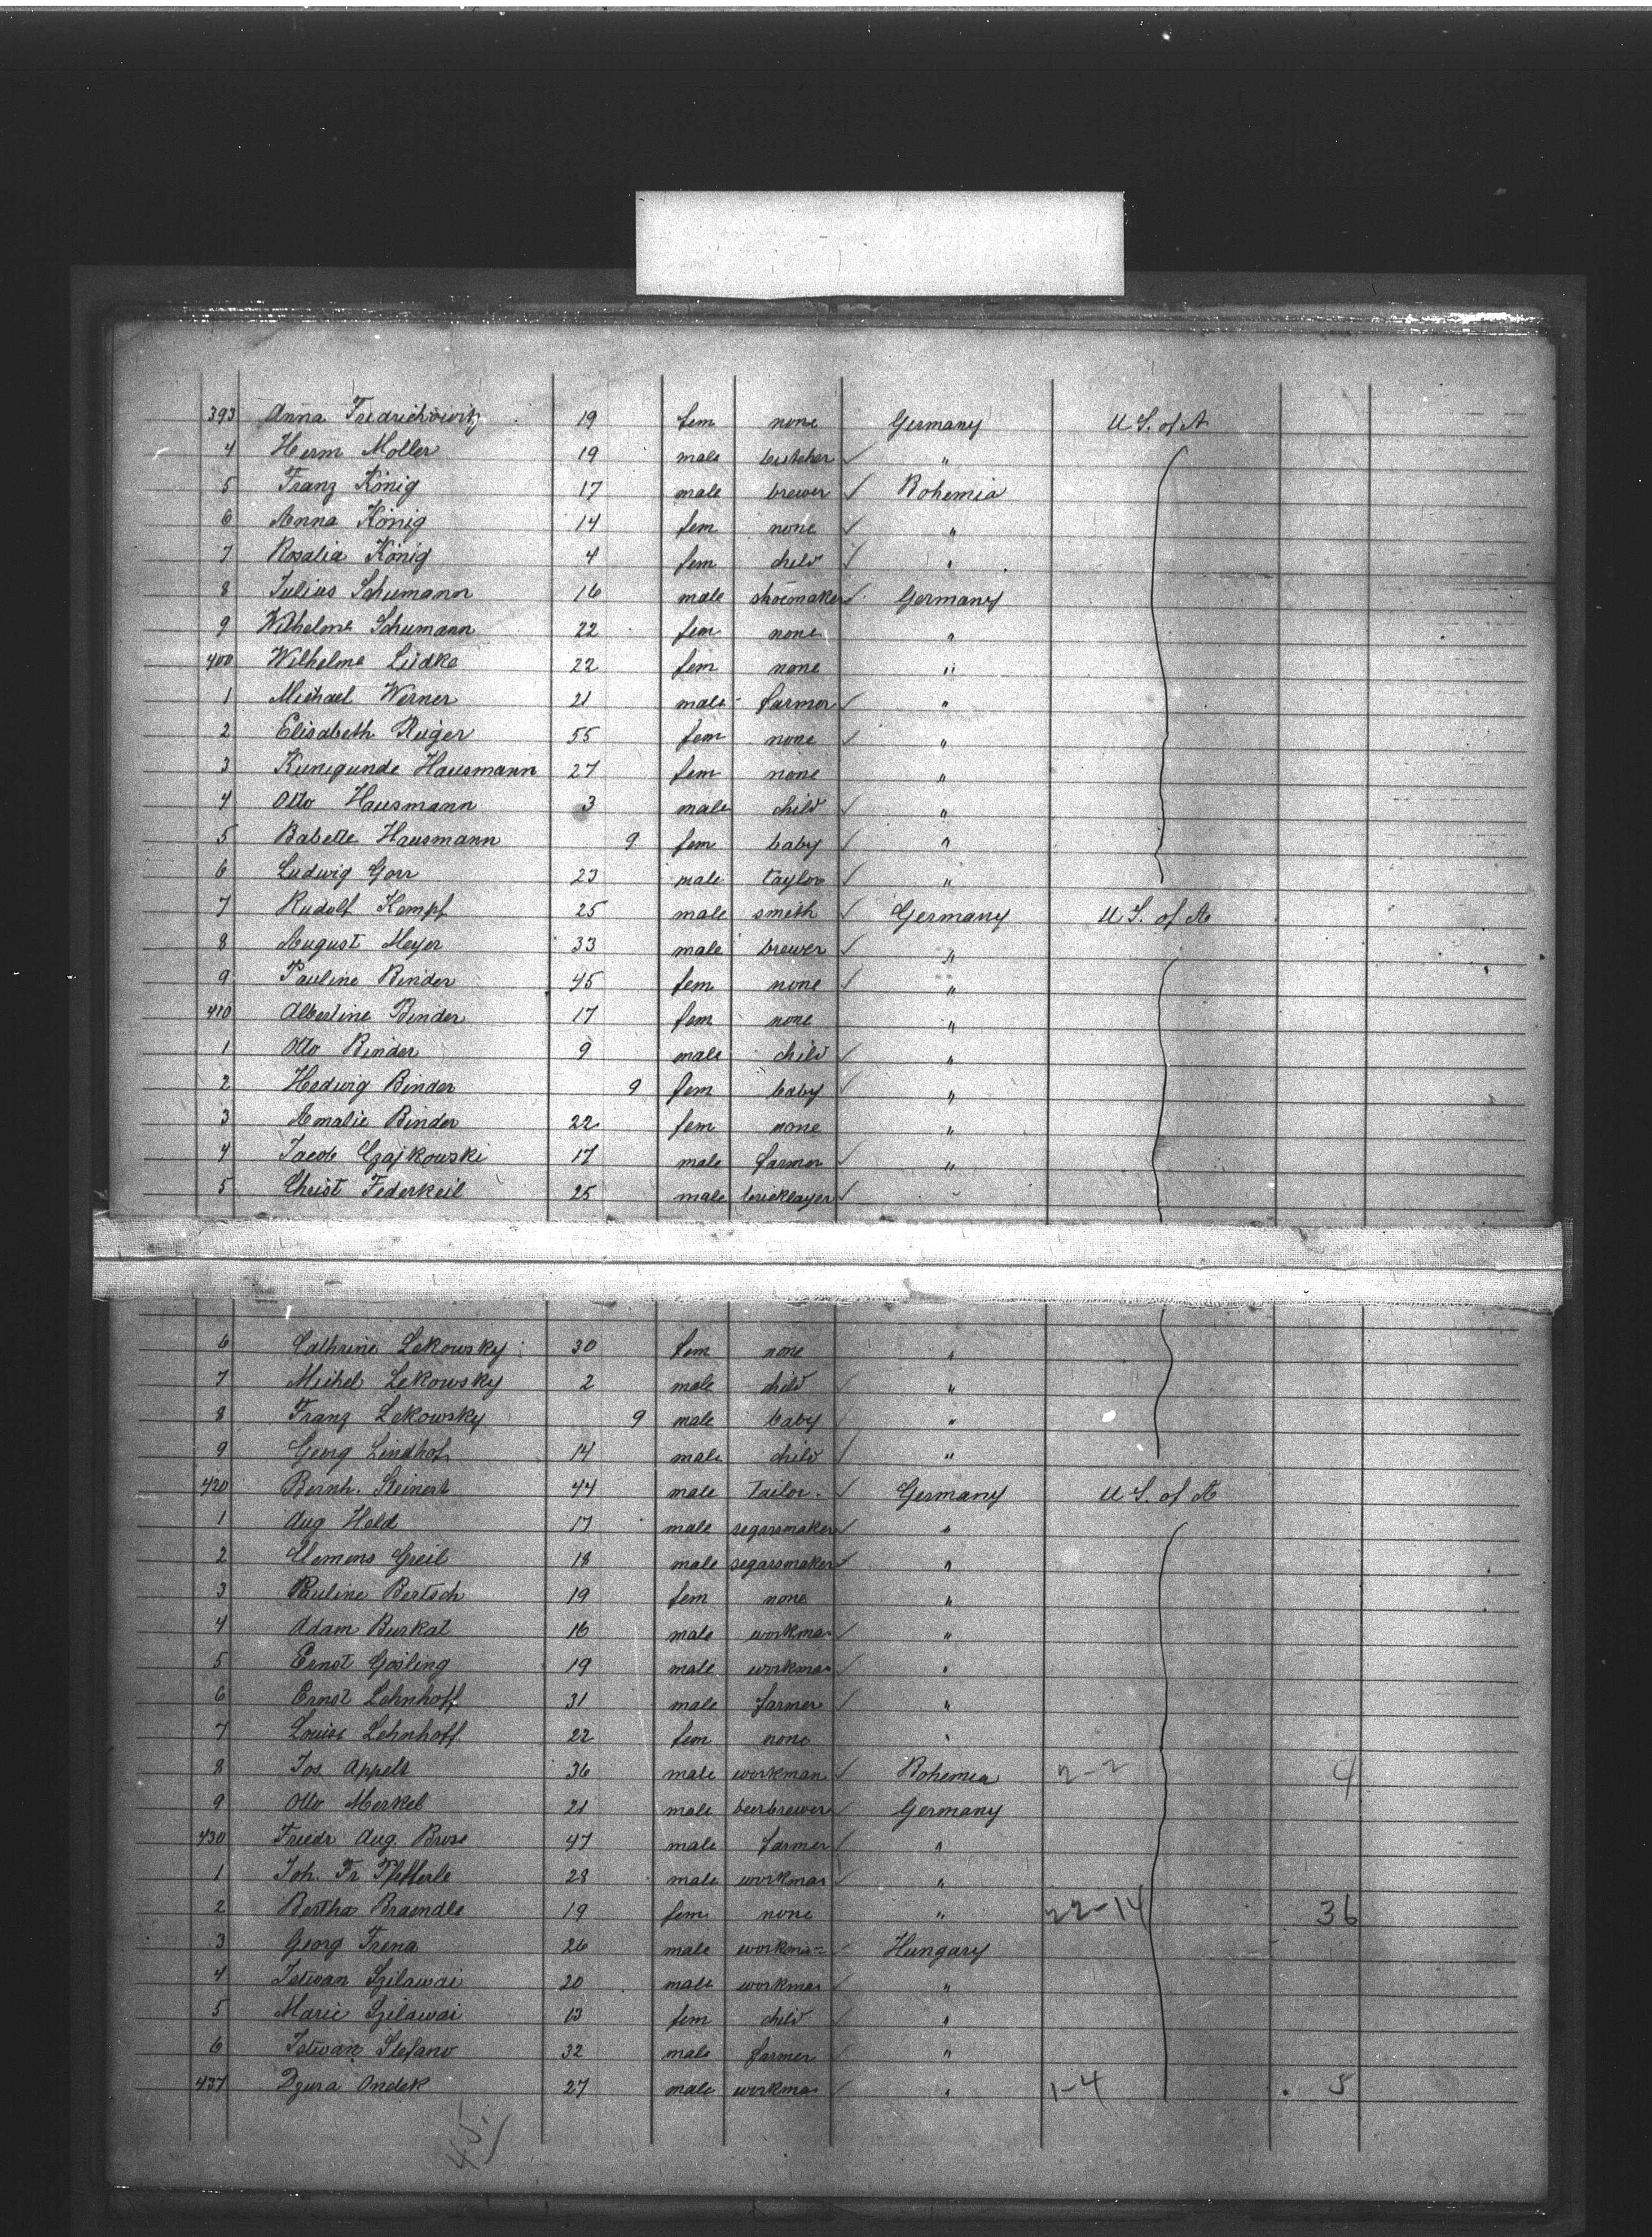 393 Anna Fredrichowitz 19 fem none Germany U.S. of A
4 Herm Moller 19 male butcher ✓ "
5 Franz König 17 male brewer ✓ Bohemia
6 Anna König 14 fem none ✓ "
7 Rosalia König 4 fem child ✓ "
8 Julius Schumann 16 male shoemaker ✓ Germany
9 Wilhelme Schumann 22 fem none "
400 Wilhelme Lüdke 22 fem none "
1 Michael Werner 21 male farmer ✓ "
2 Elisabeth Rüger 55 fem none ✓ "
3 Kunigunde Hausmann 27 fem none "
4 Otto Hausmann 3 male child ✓ "
5 Babette Hausmann 9 fem baby ✓ "
6 Ludwig Gorr 23 male taylor ✓ "
7 Rudolf Kempf 25 male smith ✓ Germany U.S. of A
8 August Meyer 33 male brewer ✓ "
9 Pauline Binder 45 fem none ✓ "
410 Albertine Binder 17 fem none "
1 Otto Binder 9 male child ✓ "
2 Hedwig Binder 9 fem baby ✓ "
3 Amalie Binder 22 fem none "
4 Jacob Czajkowski 17 male farmer ✓ "
5 Christ Federkeil 25 male bricklayer ✓
6 Cathrine Lekowsky 30 fem none "
7 Michel Lekowsky 2 male child ✓ "
8 Franz Lekowsky 9 male baby ✓ "
9 Georg Lindhof 14 male child ✓ "
420 Bernh. Steinert 44 male Tailor ✓ Germany U.S. of A
1 Aug Held 17 male segarsmaker ✓ "
2 Clemens Greil 18 male segarsmaker ✓ "
3 Pauline Bertsch 19 fem none "
4 Adam Burkat 16 male workman ✓ "
5 Ernst Gosling 19 male workman ✓ "
6 Ernst Lehnhoff 31 male farmer ✓ "
7 Louise Lehnhoff 22 fem none "
8 Jos. Appelt 36 male workman ✓ Bohemia 2-2 4
9 Otto Merkel 21 male beerbrewer ✓ Germany
430 Friedr Aug. Brose 47 male farmer ✓ "
1 Joh. Fr 28 male workman ✓ "
2 Bertha Braendle 19 fem none " 22-14 36
3 Georg Frena 26 male workman ✓ Hungary
4 Istwan Szilawai 20 male workman ✓ "
5 Marie Szilawai 13 fem child ✓ "
6 Istwan Stefano 32 male farmer ✓ "
437 Dzura Ondek 27 male workman ✓ " 1-4 5
45